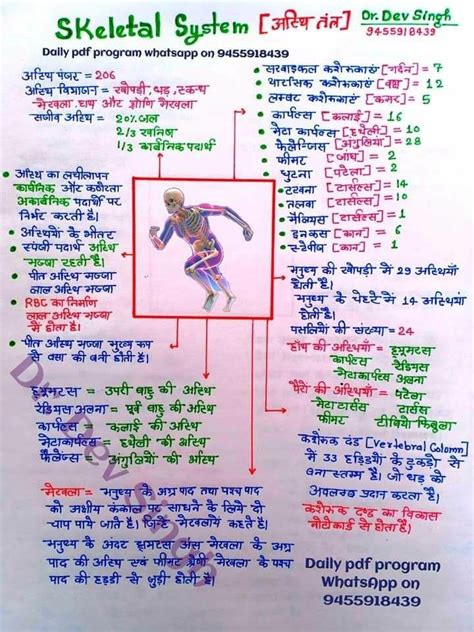 Skeletal System [अस्थि तंत्र]
Dr. Dev Singh
9455918439
Daily pdf program whatsapp on 9455918439
अस्थि पंजर = 206
अस्थि विभाजन = खोपड़ी, धड़, स्कन्ध
मेखला, घाय और श्रोणि मेखला
सजीव अस्थि = 20% जल
2/3 खनिज
1/3 कार्बनिक पदार्थ
• सरवाइकल कशेरुकाएं [गर्दन] = 7
• थारसिक कशेरुकाएं [वक्ष] = 12
• लम्बर कशेरुकाएं [कमर] = 5
• कार्पल्स [कलाई] = 16
• मेटा कार्पल्स [हथेली] = 10
• फैलेन्जिस [अंगुलियां] = 28
• फीमर [जांघ] = 2
• घुटना [पटेला] = 2
• टखना [टार्सल्स] = 14
• तलवा [टार्सल्स] = 10
• मैलियस [कान] = 1
• इनकस [कान] = 6
• स्टेपीज [कान] = 1
• अस्थि का लचीलापन
कार्बनिक और कठोरता
अकार्बनिक पदार्थों पर
निर्भर करती है।
• अस्थियों के भीतर
• स्पंजी पदार्थ अस्थि
मज्जा रहती है।
• पीत अस्थि मज्जा
लाल अस्थि मज्जा
• RBC का निर्माण
लाल अस्थि मज्जा
से होता है।
• पीत अस्थि मज्जा मुख्य रूप
से वसा की बनी होती है।
मनुष्य की खोपड़ी में 29 अस्थियां
होती है।
मनुष्य के चेहरे में 14 अस्थियां
होती है।
पसलियों की संख्या = 24
हाथ की अस्थियां = ह्यूमरस
कार्पल्स रेडियस
मेटाकार्पल्स अलना
पैरों की अस्थियाँ = पटेला
मेटा टार्सल्स टार्सल्स
फीमर टीबिया फिबुला
ह्यूमरस = उपरी बाहु की अस्थि
रेडियस अलना = पूर्व बाहु की अस्थि
कार्पल्स = कलाई की अस्थि
मेटाकार्पल्स = हथेली की अस्थि
फैलेन्जस = अंगुलियों की अस्थि
कशेरुक दंड [Vertebral Colomn]
में 33 हड्डियों के टुकड़ो से
बना स्तम्भ है। जो धड़ को
अवलम्ब प्रदान करता है।
कशेरुक दण्ड का विकास
नोटोकार्ड से होता है।
मेखला = मनुष्य के अग्र पाद तथा पश्च पाद
को अक्षीय कंकाल पर साधने के लिये दो
चाप पाये जाते है। जिन्हें मेखलाएं कहते है।
मनुष्य के अंदर ह्यूमरस अंस मेखला के अग्र
पाद की अस्थि एवं फीमर श्रोणी मेखला के पश्च
पाद की हड्डी से जुड़ी होती है।
Daily pdf program
WhatsApp on
9455918439
Dr. Dev Singh